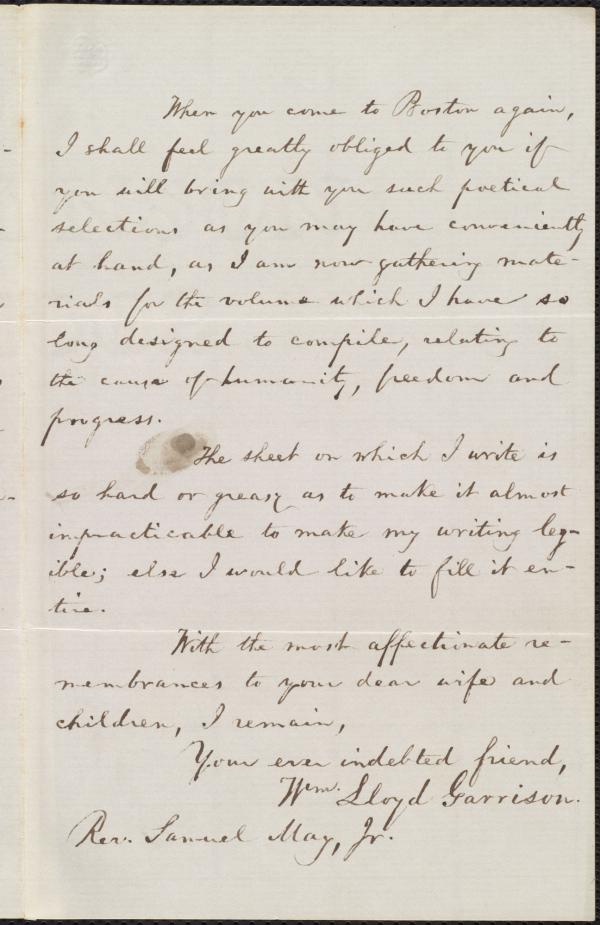 When you come to Boston again,
I shall feel greatly obliged to you if
you will bring with you such poetical
selections as you may have conveniently
at hand, as I am now gathering mate-
rials for the volume which I have so
long designed to compile, relating to
the cause of humanity, freedom and
progress.
The sheet on which I write is
so hard or greasy as to make it almost
impracticable to make my writing leg-
ible; else I would like to fill it en-
tire.
With the most affectionate re-
membrances to your dear wife and
children, I remain,
Your ever indebted friend,
Wm. Lloyd Garrison.
Rev. Samuel May, Jr.